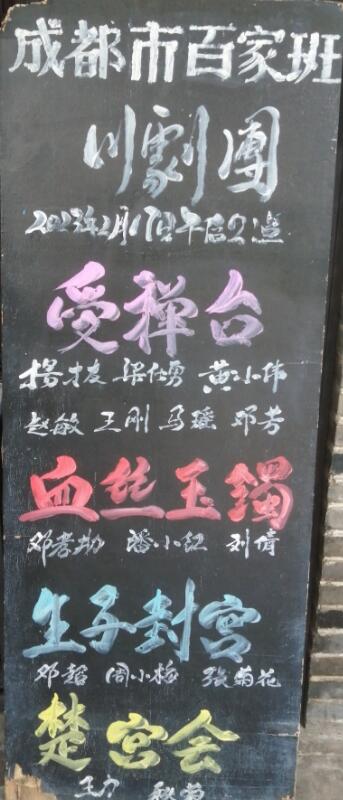 成都市百家班
川劇團
2023年2月17日午后2点
受禅台
杨才友 梁仕勇 黄小伟
赵敏 王刚 马瑶 邓芳
血丝玉镯
邓孝劼 潘小红 刘倩
生子封宫
邓超 周小梅 張菊花
楚宫会
王力